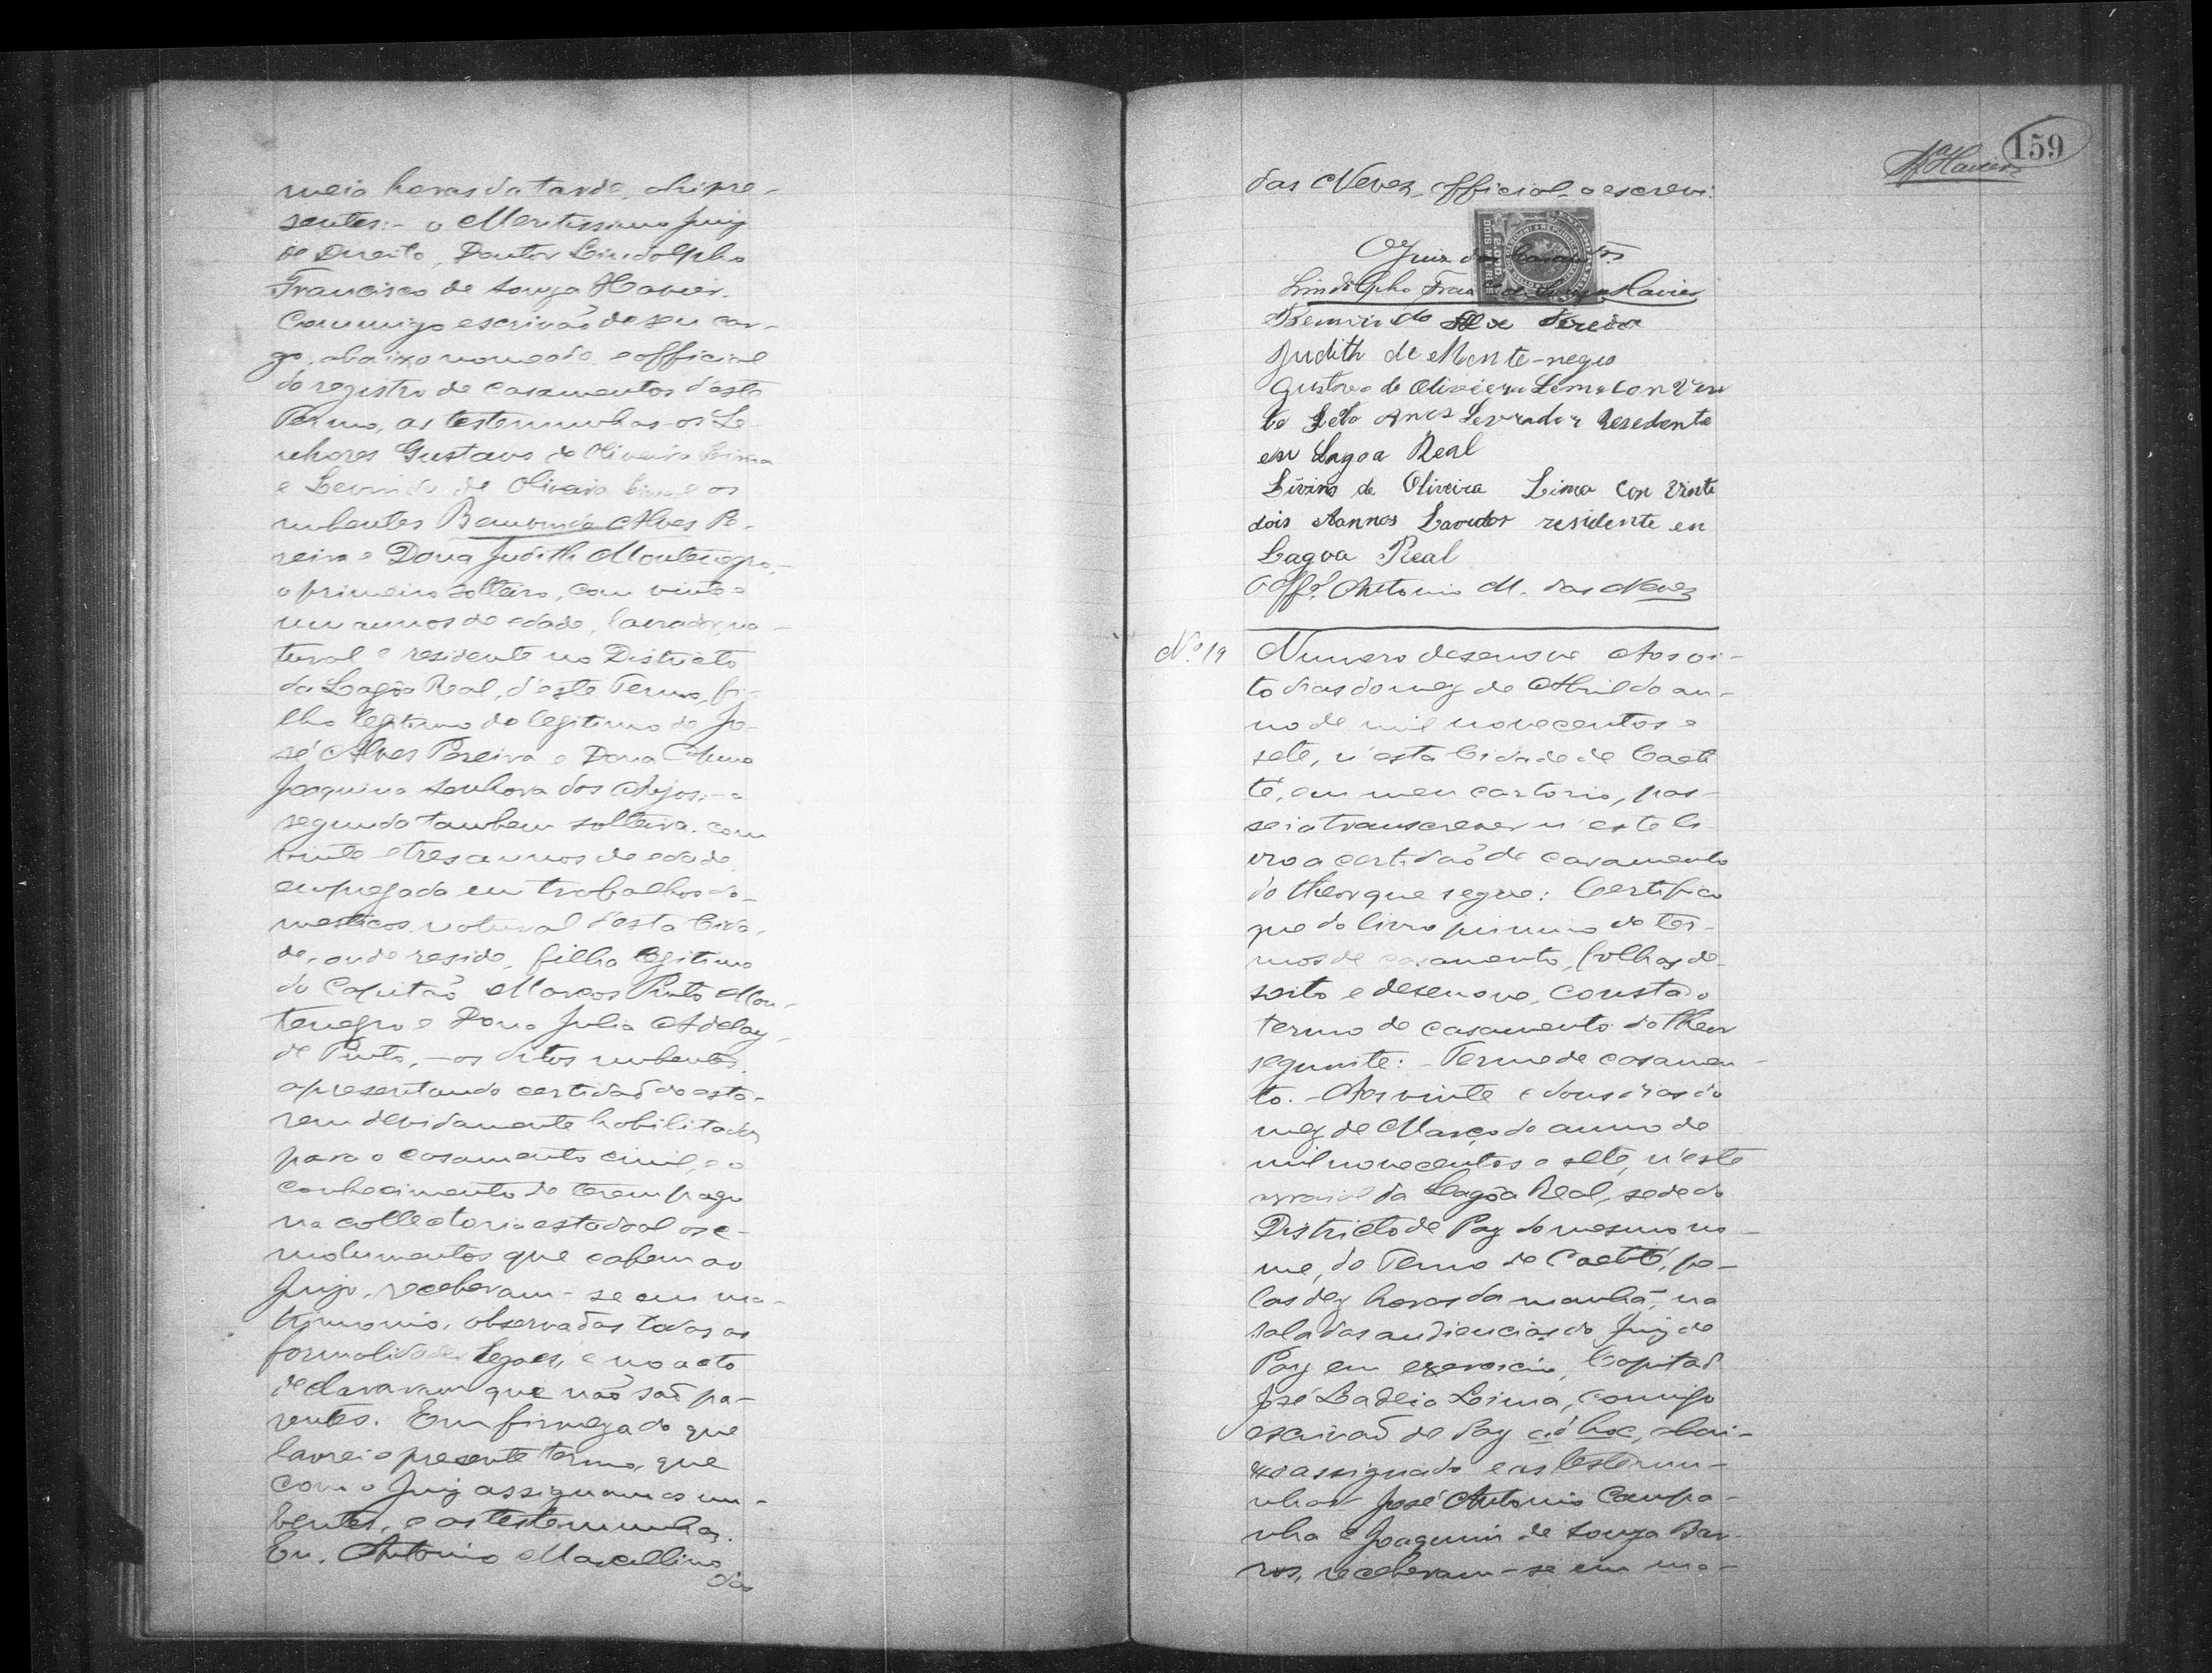 meia horas da tarde, ahi pre-
sentes:- o Meritissimo Juiz
de Direito, Doutor Lindolpho
Francisco de Souza Xavier,
Commigo escrivão de seu car-
go, abaixo nomeado e official
do registro de casamentos d'este
Termo, as testemunhas os Se
nhores Gustavo de Oliveira Lima
e Levino de Oliveira Lima e os
nubentes Bemvindo Alves Pe-
reira e Dona Judith Montenegro,-
o primeiro solteiro, com vinte e
um annos de edade, lavrador, na-
tural e residente no Districto
da Lagôa Real, d'este Termo, fi-
lho legitimo do legitimo de Jo-
sé Alves Pereira e Dona Anna
Joaquina Senhora dos Anjos;- a
segunda tambem solteira, com
vinte e tres annos de edade,
empregada em trabalhos do-
mesticos, natural d'esta Cida-
de, onde reside, filha legitima
do Capitão Marcos Pinto Mon-
tenegro e Dona Julia Adelay-
de Pinto,- os ditos nubentes,
apresentando certidão de esta-
rem devidamente habilitados
para o casamento civil, e o
conhecimento de terem pago
na collectoria estadoal os e-
molumentos que cabem ao
Juizo, receberam-se em ma-
trimonio, observadas todas as
formalidades legaes, e no acto
declararam que não são pa-
rentes. Em firmeza do que
lavrei o presente termo, que
com o Juiz assignam os nu-
bentes, e as testemunhas.
Eu, Antonio Marcellino
das
159
Xavier
das Neves, official o escrevi.
O Juiz dos Casamtos
Lindolpho Fran de Souza Xavier
Bemvindo Alve Pereira
Judith de Monte-negro
Gustavo de Oliviera Lima con Vin
te Seto Anos Levrador Resedente
em Lagoa Real
Livino de Oliveira Lima Con Vinte
dois Aannos Lavrador residente en
Lagoa Real
O Offal Antonio M. das Neves
No. 19
Numero desenove Aos oi-
to dias do mez de Abril do an-
no de mil novecentos e
sete, n'esta Cidade de Caeti
té, em meu cartorio, pas-
sei a transcrever n'este li-
vro a certidão de casamento
do theor que segue: Certifico
que do livro primeiro de ter-
mos de casamento, folhas de-
soito e desenove, consta o
termo de casamento do theor
seguinte:- Termo de casamen-
to.- Aos vinte e dous dias do
mez de Março do anno de
mil novecentos e sete, n'este
arraial da Lagôa Real, sede do
Districto de Paz do mesmo no-
me, do Termo de Caetité, pe-
las dez horas da manhã, na
sala das audiencias do Juiz de
Paz em exercicio, Capitão
José Badeia Lima, comigo
escrivão de Paz ad hoc, abai-
xo assignado e as testemu-
nhas José Antonio Campa-
nha e Joaquim de Souza Bar-
ros, receberam-se em ma-